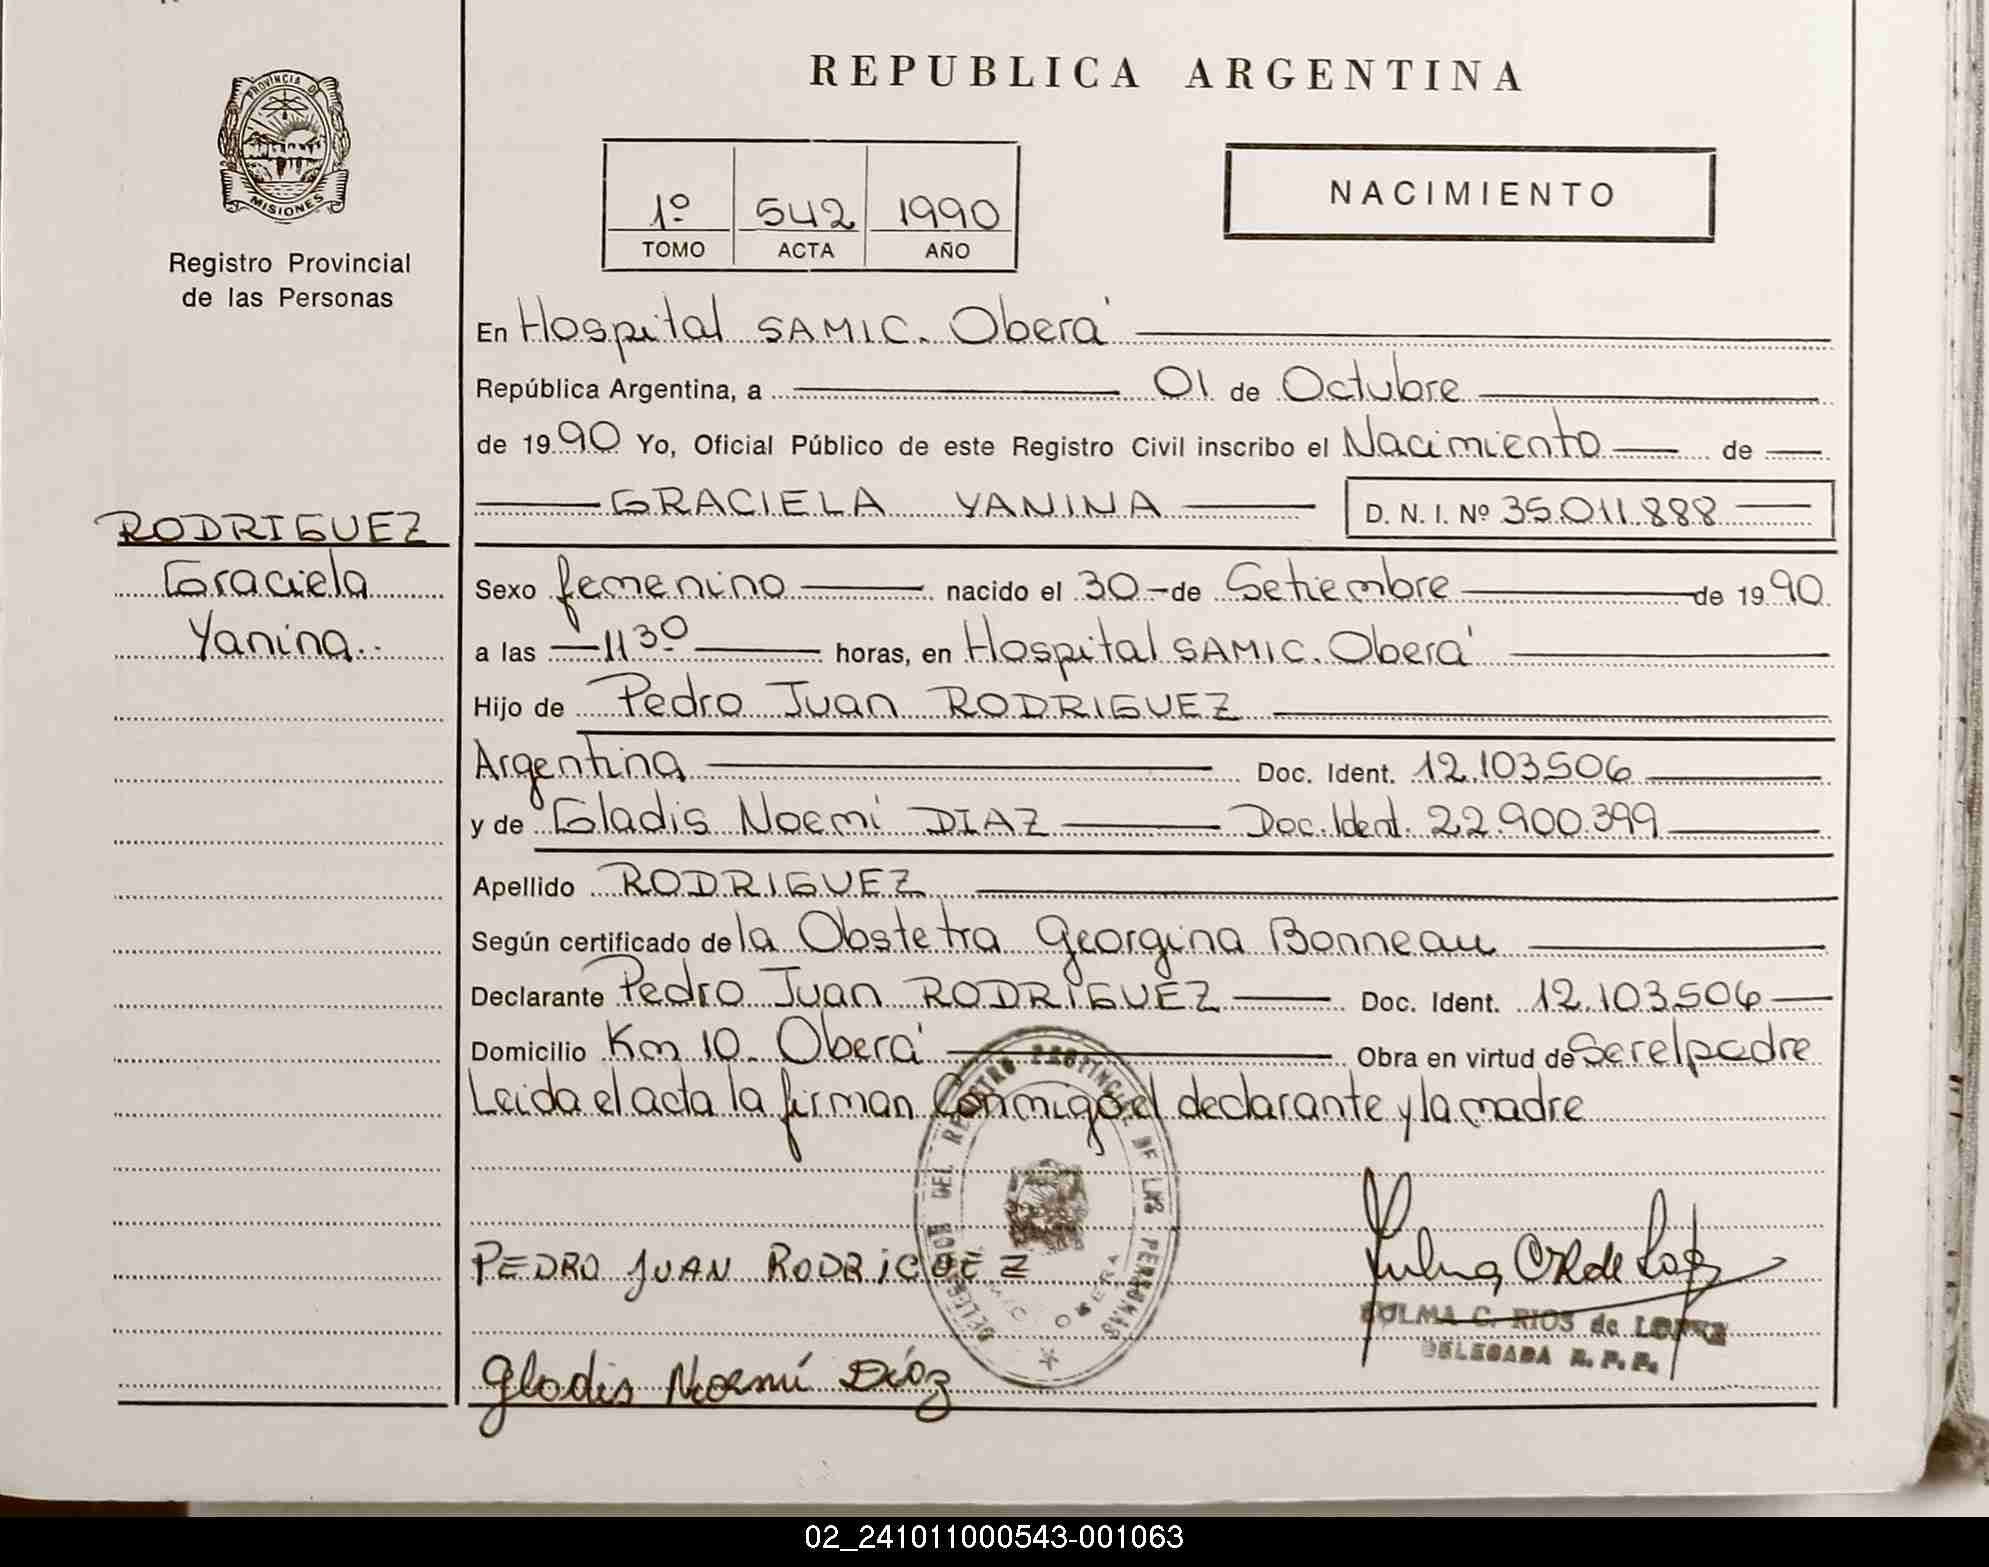 REPUBLICA ARGENTINA
PROVINCIA DE
MISIONES
Registro Provincial
de las Personas
1º 542 1990
TOMO ACTA AÑO
NACIMIENTO
En Hospital SAMIC. Oberá
República Argentina, a 01 de Octubre
de 1990 Yo, Oficial Público de este Registro Civil inscribo el Nacimiento de
GRACIELA YANINA D. N. I. Nº 35.011.888
RODRIGUEZ
Graciela
Yanina..
Sexo femenino nacido el 30 de Setiembre de 1990
a las 11 30 horas, en Hospital SAMIC. Oberá
Hijo de Pedro Juan RODRIGUEZ
Argentina Doc. Ident. 12.103.506
y de Gladis Noemí DIAZ Doc. Ident. 22.900.399
Apellido RODRIGUEZ
Según certificado de la Obstetra Georgina Bonneau
Declarante Pedro Juan RODRIGUEZ Doc. Ident. 12.103.506
Domicilio Km 10. Oberá Obra en virtud de Ser el padre
Leida el acta la firman Conmigo el declarante y la madre
DEL REGISTRO PROVINCIAL DE LAS PERSONAS
OBERA
PEDRO JUAN RODRIGUEZ
ZULMA C. RIOS de LOPEZ
DELEGADA R. P. P.
Gladis Noemí Díaz
02_241011000543-001063